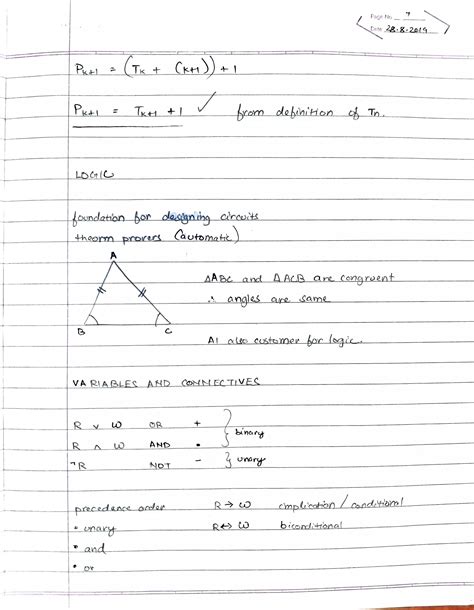 Page No. 7
Date 28.8.2019
P_{k+1} = (T_k + (k+1)) + 1
P_{k+1} = T_{k+1} + 1 ✓ from definition of Tn.
LOGIC
foundation for designing circuits
theorm provers (automatic)
A
B C
△ABC and △ACB are congruent
∴ angles are same
AI also customer for logic.
VARIABLES AND CONNECTIVES
R ∨ W OR + } binary
R ∧ W AND •
¬R NOT - } unary
precedence order R → W implication / conditional
• unary R ↔ W biconditional
• and
• or